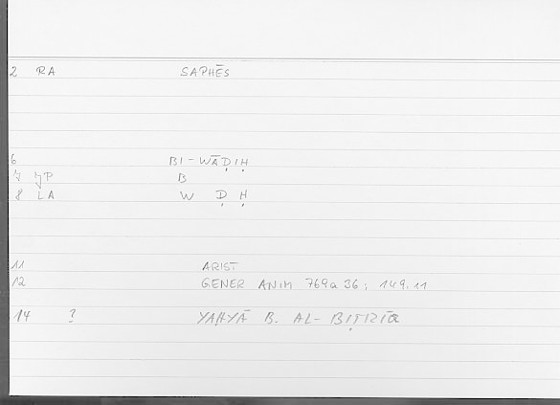 2 RA SAPHĒS
6 BI-WĀḌIḤ
7 B
8 LA W Ḍ Ḥ
11 ARIST
12 GENER ANIM 769a36; 149.11
14 ? YAḤYĀ B. AL-BIṬRĪQ